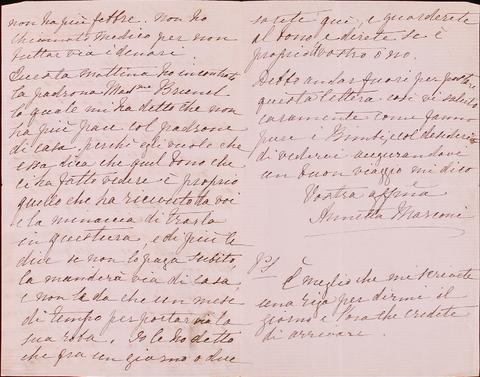 non ha più febbre. Non ho
chiamato medico per non
buttar via i denari.
Questa mattina ho incontrato
la padrona Mad.me
la quale mi ha detto che non
ha più pace col padrone
di casa, perchè egli vuole che
essa dica che quel dono che
ci ha fatto vedere è proprio
quello che ha ricevuto da voi
e la minaccia di tirarla
in questura, e di più le
dice se non lo paga subito,
la manderà via di casa
e non le da che un mese
di tempo per portar via la
sua roba. Io le ho detto
che fra un giorno o due
sarete qui, e guarderete
al dono e direte se è
proprio il vostro o no.
Debbo andar fuori per portare
questa lettera. così vi saluto
caramente come fanno
pure i Bimbi, col desiderio
di vedervi augurandovi
un buon viaggio mi dico
Vostra affma
Annetta Marconi
PS
È meglio che mi scriviate
una riga per dirmi il
giorno e l'ora che credete
di arrivare.